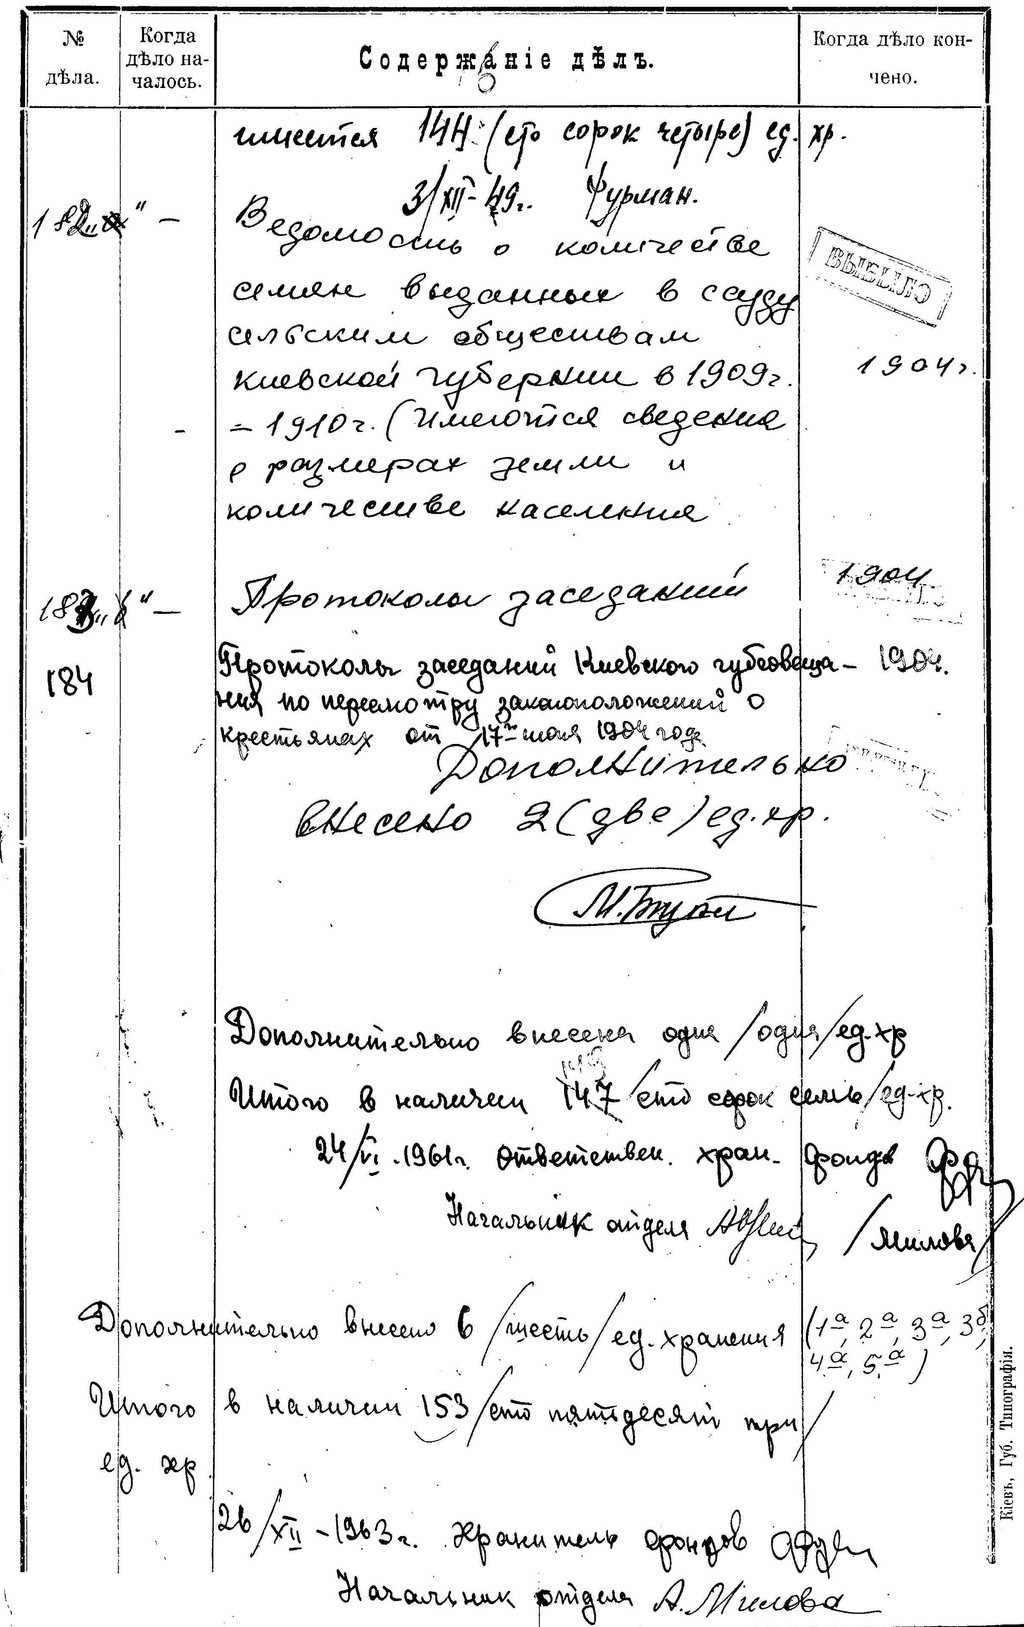 № дѣла.
Когда дѣло началось.
Содержаніе дѣлъ.
Когда дѣло кончено.
имеется 144 (сто сорок четыре) ед. хр.
3/XII-49г. Фурман.
182 " -
Ведомость о количестве
семян выданных в ссуду
сельским обществам
Киевской губернии в 1909г. 1904г.
- = 1910г. (Имеются сведения
о размерах земли и
количестве населения
ВЫБЫЛО
183 " - Протоколы заседаний 1904
184 Протоколы заседаний Киевского губсовеща- 1904.
ния по пересмотру законоположений о
крестьянах от 17го июля 1904 года
Дополнительно
внесено 2 (две) ед. хр.
Дополнительно внесена одна /одна/ ед. хр
Итого в наличии 147 /сто сорок семь/ ед. хр.
24/VI-1961г. Ответствен. хран. фондов
Начальник отдела /Милова/
Дополнительно внесено 6 /шесть/ ед. хранения (1а, 2а, 3а, 3б,
4а, 5а)
Итого в наличии 153 /сто пятьдесят три/
ед. хр.
26/XII-1963г. Хранитель фондов
Начальник отдела А. Милова
Кіевъ, Губ. Типографія.